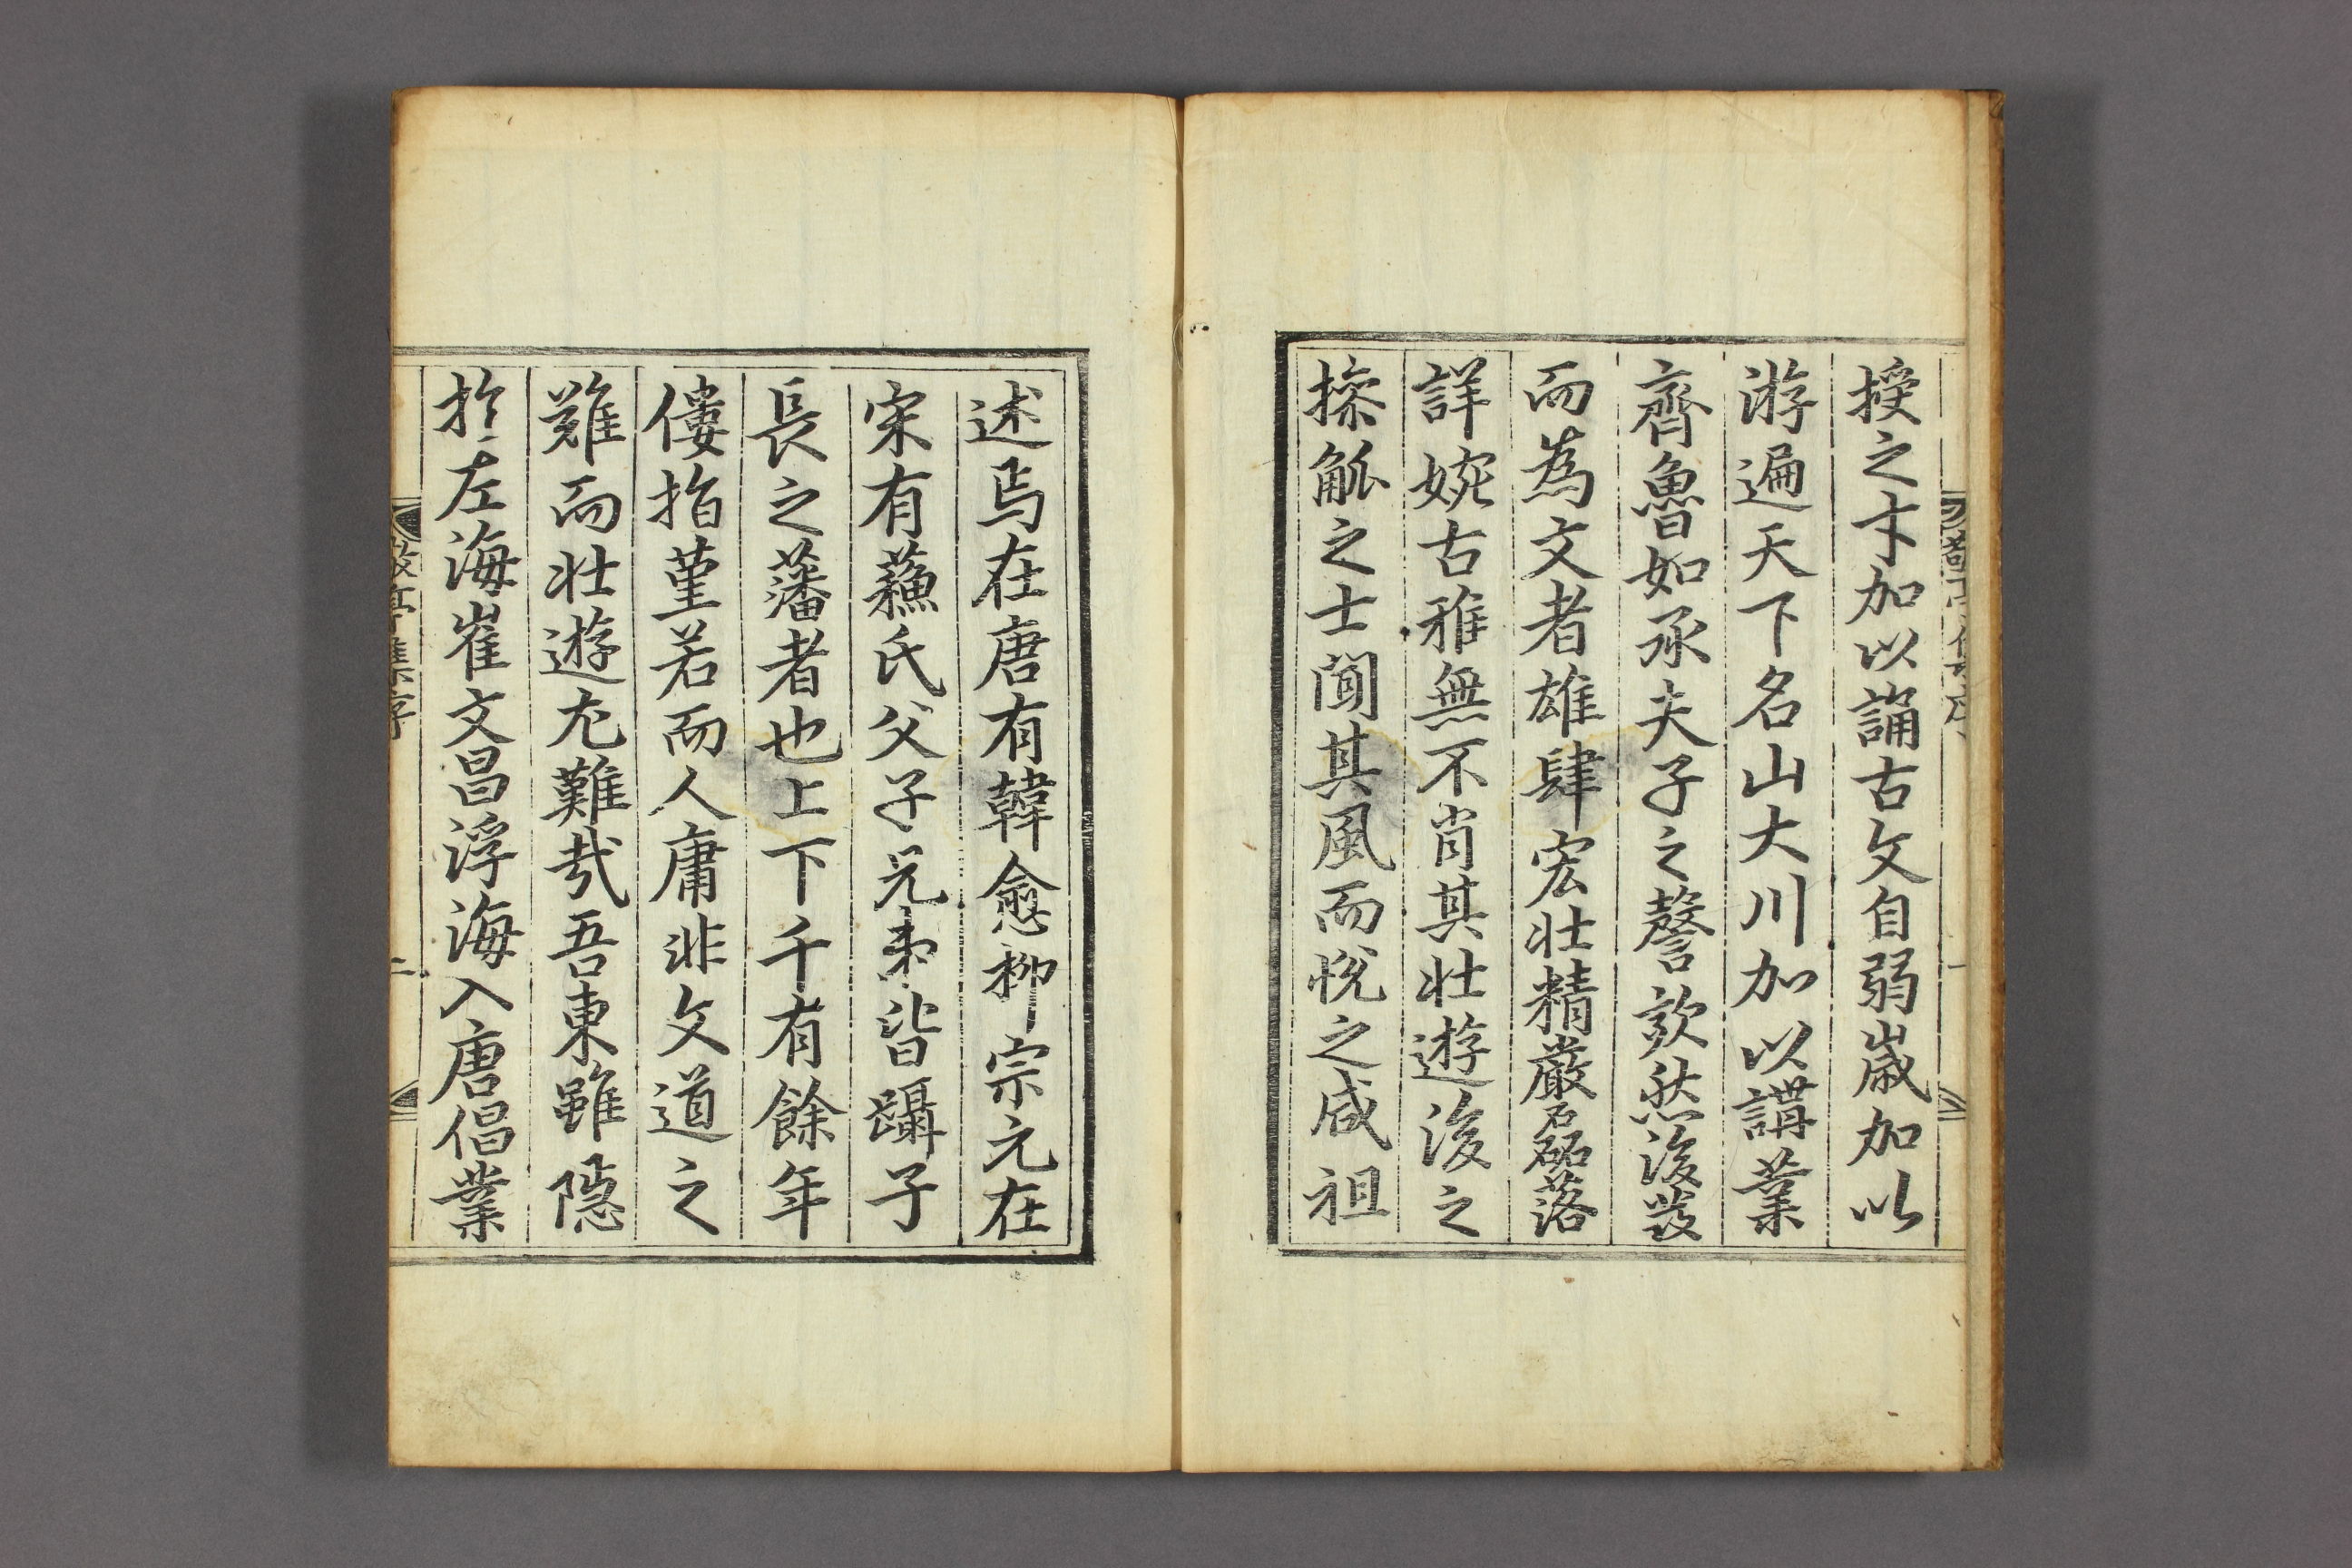 授之才加以誦古文自弱歲加以
游遍天下名山大川加以講業
齊魯如承夫子之謦欬然後發
而為文者雄肆宏壯精嚴磊落
詳婉古雅無不肖其壯遊後之
操觚之士聞其風而悅之咸祖
述焉在唐有韓愈柳宗元在
宋有蘓氏父子兄弟皆躡子
長之藩者也上下千有餘年
僂指堇若而人庸非文道之
難而壯遊尤難㦲吾東雖隱
扵左海崔文昌浮海入唐倡業
敬亭集序
二